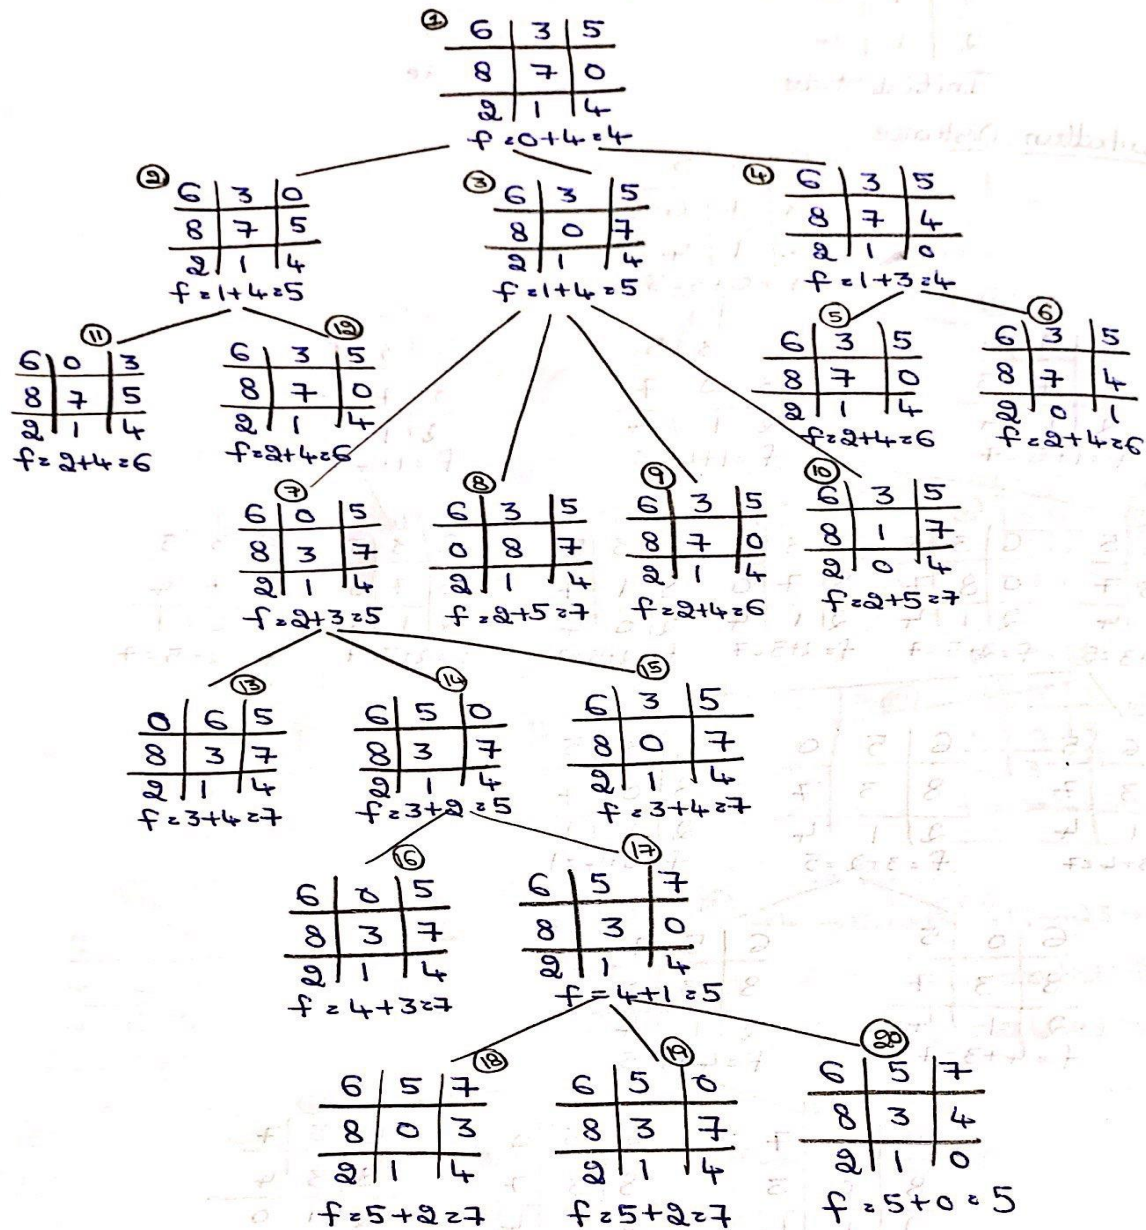 ① 6 3 5
8 7 0
2 1 4
f=0+4=4
② 6 3 0
8 7 5
2 1 4
f=1+4=5
③ 6 3 5
8 0 7
2 1 4
f=1+4=5
④ 6 3 5
8 7 4
2 1 0
f=1+3=4
⑪
6 0 3
8 7 5
2 1 4
f=2+4=6
⑫
6 3 5
8 7 0
2 1 4
f=2+4=6
⑤
6 3 5
8 7 0
2 1 4
f=2+4=6
⑥
6 3 5
8 7 4
2 0 1
f=2+4=6
⑦
6 0 5
8 3 7
2 1 4
f=2+3=5
⑧
6 3 5
0 8 7
2 1 4
f=2+5=7
⑨
6 3 5
8 7 0
2 1 4
f=2+4=6
⑩
6 3 5
8 1 7
2 0 4
f=2+5=7
⑬
0 6 5
8 3 7
2 1 4
f=3+4=7
⑭
6 5 0
8 3 7
2 1 4
f=3+2=5
⑮
6 3 5
8 0 7
2 1 4
f=3+4=7
⑯
6 0 5
8 3 7
2 1 4
f=4+3=7
⑰
6 5 7
8 3 0
2 1 4
f=4+1=5
⑱
6 5 7
8 0 3
2 1 4
f=5+2=7
⑲
6 5 0
8 3 7
2 1 4
f=5+2=7
⑳
6 5 7
8 3 4
2 1 0
f=5+0=5